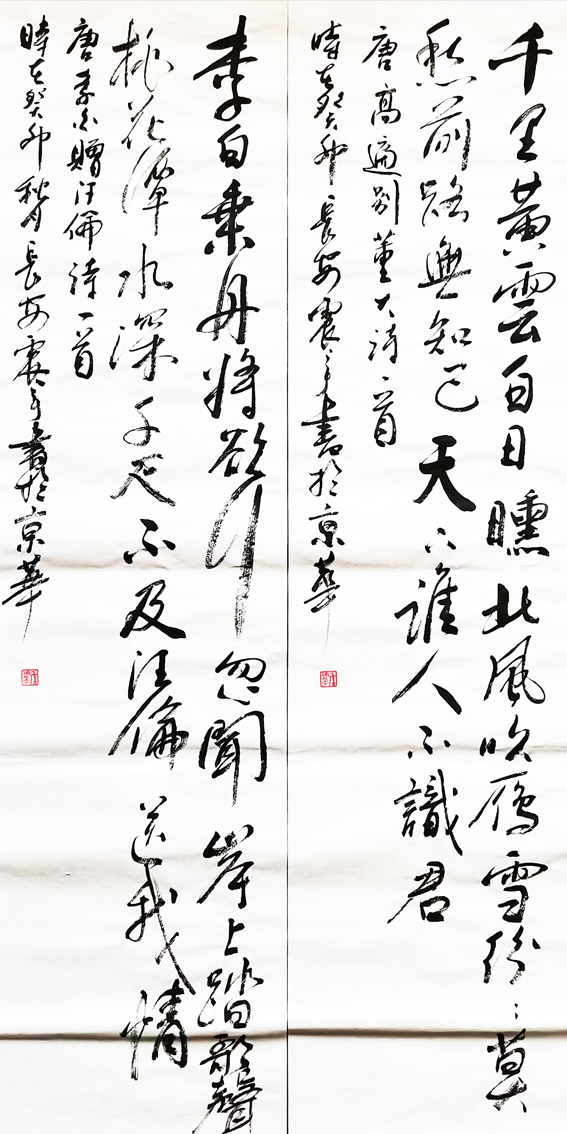 千里黃雲白日曛北風吹雁雪紛〻莫
愁前路無知已天下誰人不識君
唐高適別董大詩一首
時在癸卯長安震之書於京華
李白乘舟將欲行忽聞岸上踏歌聲
桃花潭水深千尺不及汪倫送我情
唐李白贈汪倫詩一首
時在癸卯秋月長安震之書於京華